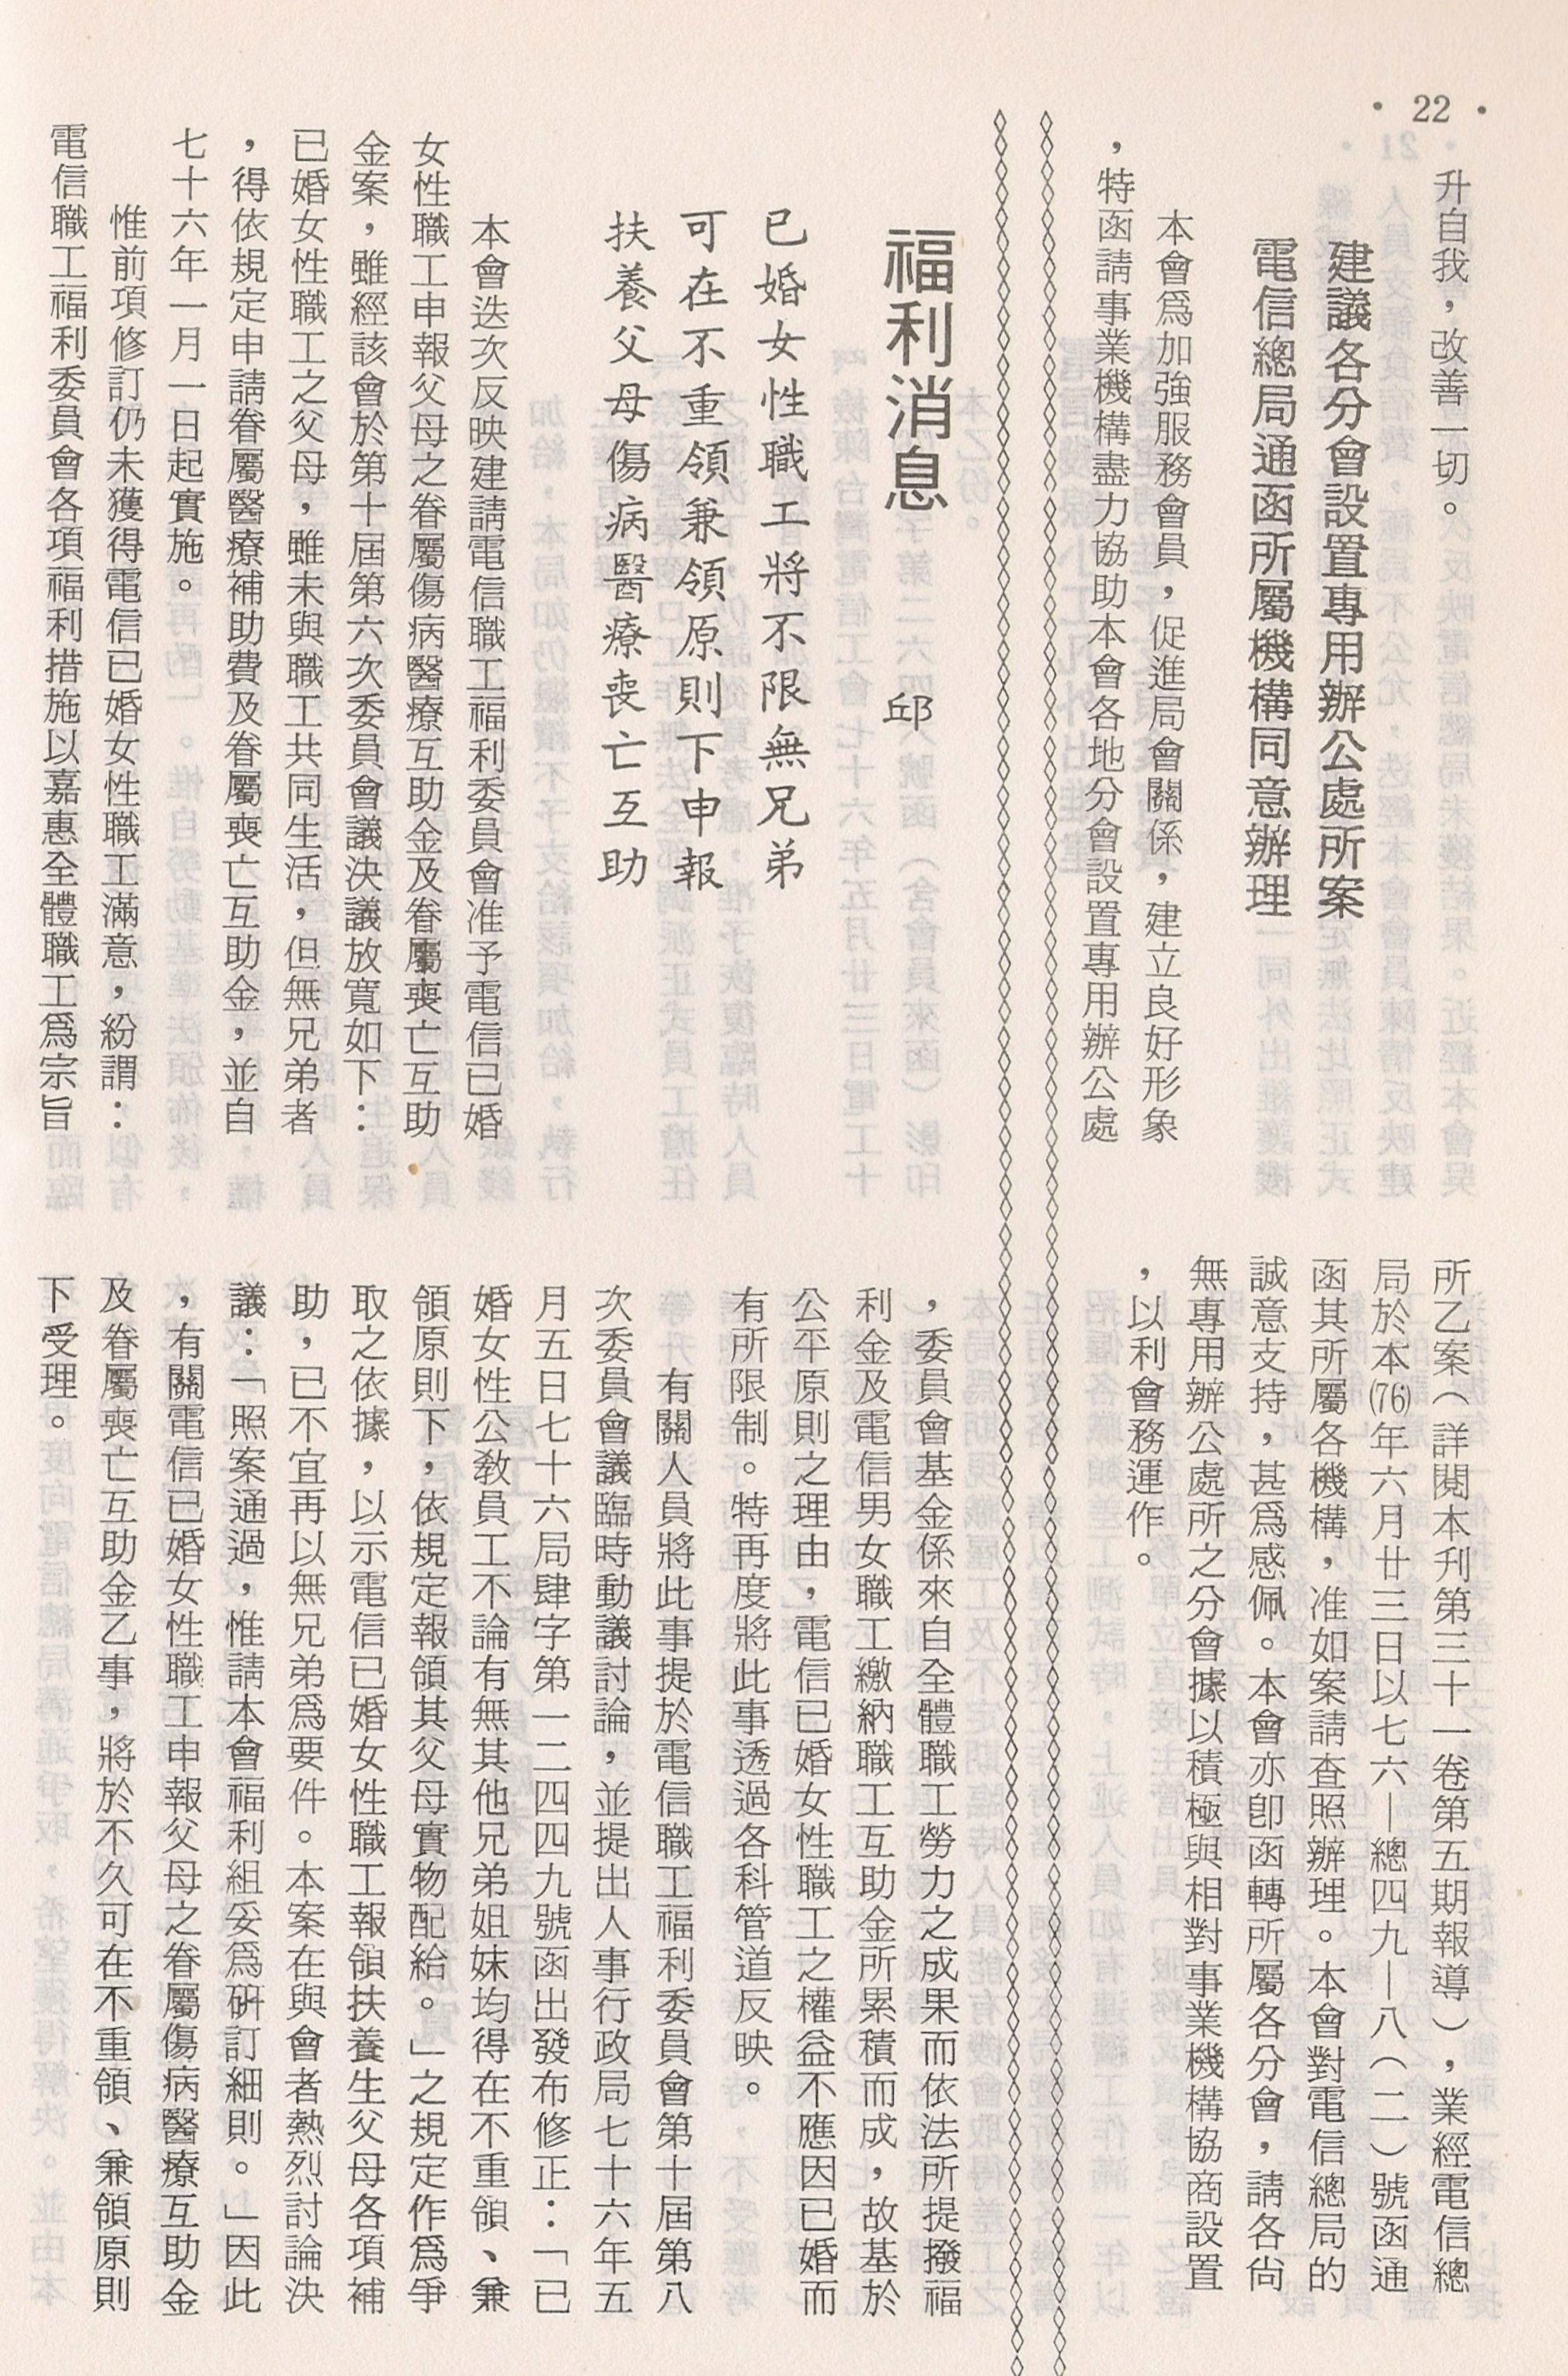 • 22 •
升自我，改善一切。
建議各分會設置專用辦公處所案
電信總局通函所屬機構同意辦理
本會爲加強服務會員，促進局會關係，建立良好形象
，特函請事業機構盡力協助本會各地分會設置專用辦公處
所乙案（詳閱本刊第三十一卷第五期報導），業經電信總
局於本(76)年六月廿三日以七六—總四九—八（二）號函通
函其所屬各機構，准如案請查照辦理。本會對電信總局的
誠意支持，甚爲感佩。本會亦卽函轉所屬各分會，請各尙
無專用辦公處所之分會據以積極與相對事業機構協商設置
，以利會務運作。
福利消息
邱
已婚女性職工將不限無兄弟
可在不重領兼領原則下申報
扶養父母傷病醫療喪亡互助
本會迭次反映建請電信職工福利委員會准予電信已婚
女性職工申報父母之眷屬傷病醫療互助金及眷屬喪亡互助
金案，雖經該會於第十屆第六次委員會議決議放寬如下：
已婚女性職工之父母，雖未與職工共同生活，但無兄弟者
，得依規定申請眷屬醫療補助費及眷屬喪亡互助金，並自
七十六年一月一日起實施。
惟前項修訂仍未獲得電信已婚女性職工滿意，紛謂：
電信職工福利委員會各項福利措施以嘉惠全體職工爲宗旨
，委員會基金係來自全體職工勞力之成果而依法所提撥福
利金及電信男女職工繳納職工互助金所累積而成，故基於
公平原則之理由，電信已婚女性職工之權益不應因已婚而
有所限制。特再度將此事透過各科管道反映。
有關人員將此事提於電信職工福利委員會第十屆第八
次委員會議臨時動議討論，並提出人事行政局七十六年五
月五日七十六局肆字第一二四四九號函出發布修正：「已
婚女性公敎員工不論有無其他兄弟姐妹均得在不重領、兼
領原則下，依規定報領其父母實物配給。」之規定作爲爭
取之依據，以示電信已婚女性職工報領扶養生父母各項補
助，已不宜再以無兄弟爲要件。本案在與會者熱烈討論決
議：「照案通過，惟請本會福利組妥爲硏訂細則。」因此
，有關電信已婚女性職工申報父母之眷屬傷病醫療互助金
及眷屬喪亡互助金乙事，將於不久可在不重領、兼領原則
下受理。